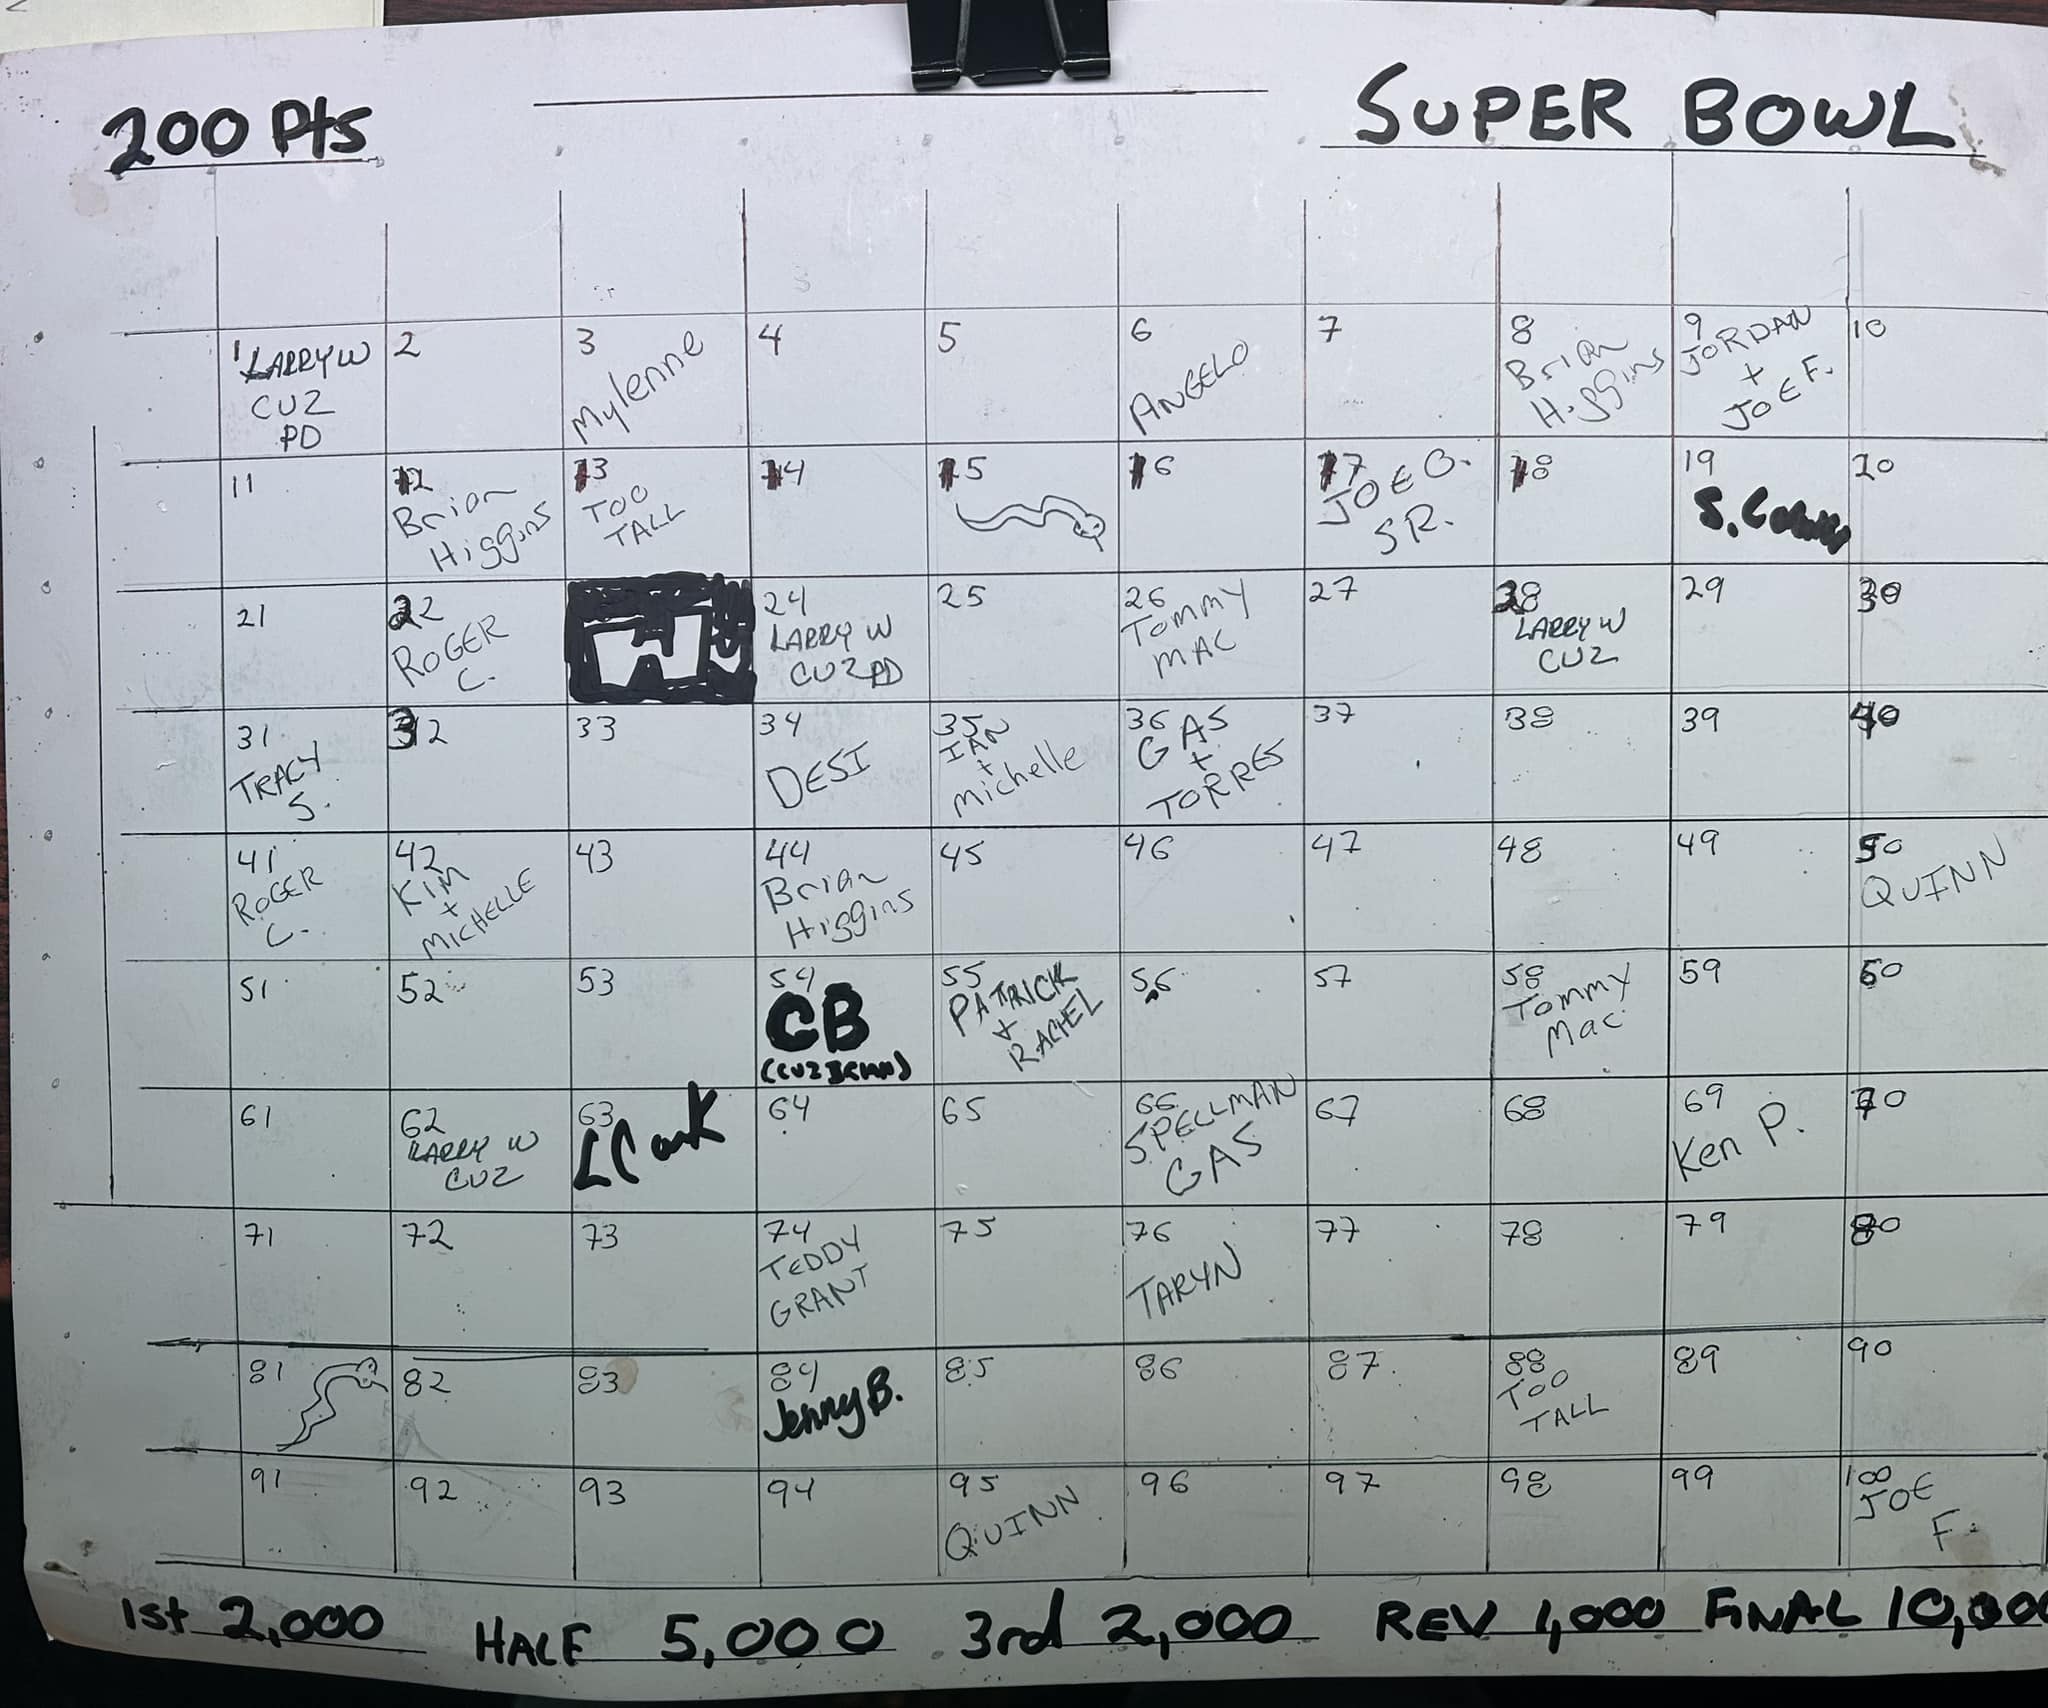 200 Pts
SUPER BOWL
1 LARRY W
CUZ
PD
2
3
Mylenne
4
5
6
ANGELO
7
8
Brian
Higgins
9
JORDAN
+
JOE F.
10
11
12
Brian
Higgins
13
TOO
TALL
14
15
16
17
JOE O.
SR.
18
19
20
21
22
ROGER
C.
24
LARRY W
CUZ PD
25
26
Tommy
MAC
27
28
LARRY W
CUZ
29
30
31
TRACY
S.
32
33
34
DESI
35
IAN
+
Michelle
36
GAS
+
TORRES
37
38
39
40
41
ROGER
C.
42
KIM
+
MICHELLE
43
44
Brian
Higgins
45
46
47
48
49
50
QUINN
51
52
53
54
CB
(CUZ BRIAN)
55
PATRICK
+
RACHEL
56
57
58
Tommy
Mac
59
60
61
62
LARRY W
CUZ
63
64
65
66
SPELLMAN
GAS
67
68
69
Ken P.
70
71
72
73
74
TEDDY
GRANT
75
76
TARYN
77
78
79
80
81
82
83
84
Jenny B.
85
86
87
88
TOO
TALL
89
90
91
92
93
94
95
QUINN
96
97
98
99
100
JOE
F.
1st 2,000 HALF 5,000 3rd 2,000 REV 1,000 FINAL 10,000